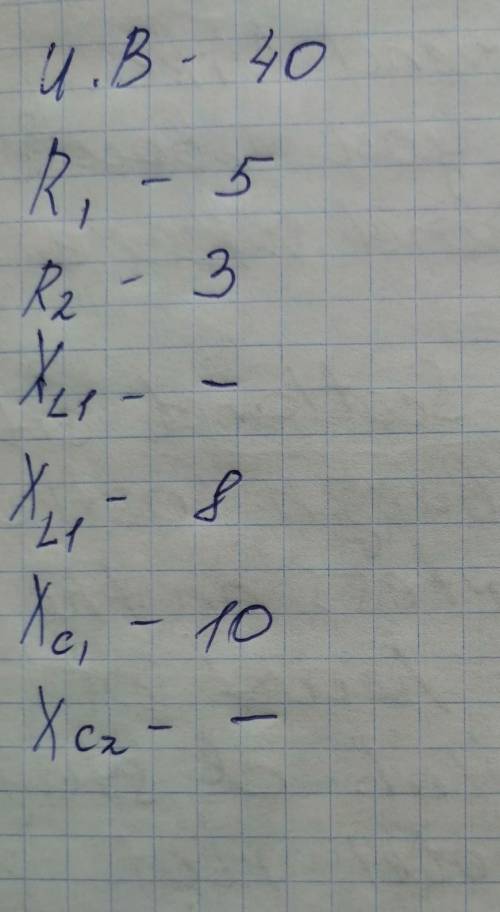 U.В - 40
R1 - 5
R2 - 3
XL1 - -
XL1 - 8
Xc1 - 10
Xc2 - -